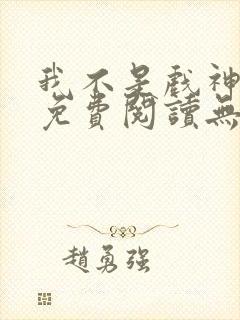 我不是戲神
免費閱讀無
趙勇強